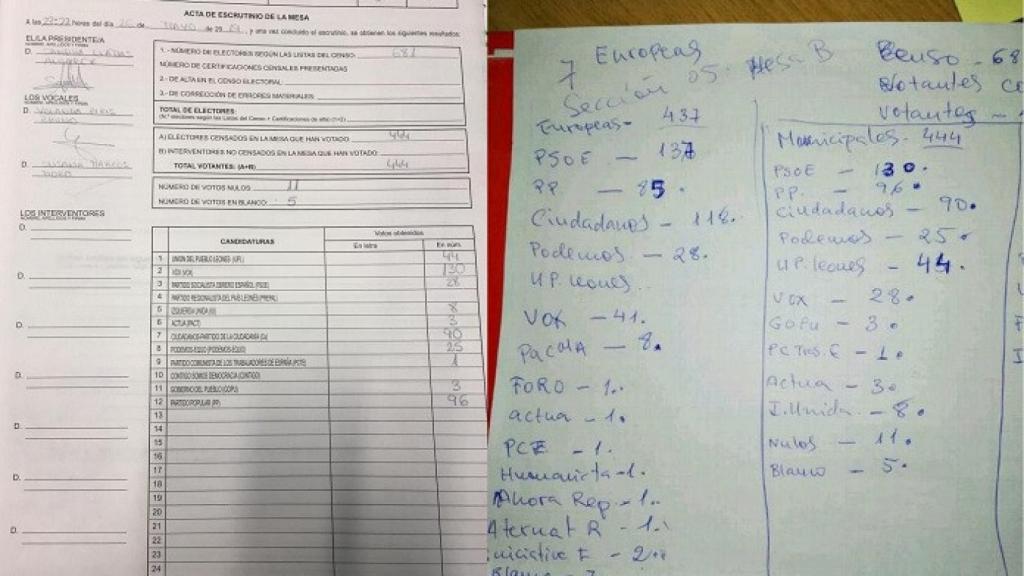 ACTA DE ESCRUTINIO DE LA MESA
A las 23:22 horas del día 26 de MAYO de 2019, y una vez concluido el escrutinio, se obtienen los siguientes resultados:
EL/LA PRESIDENTE/A
NOMBRE, APELLIDOS Y FIRMA
D.
LOS VOCALES
NOMBRE, APELLIDOS Y FIRMA
D.
D. SUSANA MARCOS
LOS INTERVENTORES
NOMBRE, APELLIDOS Y FIRMA
D.
D.
D.
D.
D.
D.
D.
1.- NÚMERO DE ELECTORES SEGÚN LAS LISTAS DEL CENSO: 681
NÚMERO DE CERTIFICACIONES CENSALES PRESENTADAS
2.- DE ALTA EN EL CENSO ELECTORAL:
3.- DE CORRECCIÓN DE ERRORES MATERIALES:
TOTAL DE ELECTORES:
(N.º electores según las Listas del Censo + Certificaciones de alta (1+2))
A) ELECTORES CENSADOS EN LA MESA QUE HAN VOTADO: 444
B) INTERVENTORES NO CENSADOS EN LA MESA QUE HAN VOTADO:
TOTAL VOTANTES: (A+B) 444
NÚMERO DE VOTOS NULOS: 11
NÚMERO DE VOTOS EN BLANCO: 5
CANDIDATURAS Votos obtenidos
En letra En núm.
1 UNION DEL PUEBLO LEONES (UPL) 44
2 VOX (VOX) 130
3 PARTIDO SOCIALISTA OBRERO ESPAÑOL (PSOE) 28
4 PARTIDO REGIONALISTA DEL PAIS LEONÉS (PREPAL)
5 IZQUIERDA UNIDA (IU) 8
6 ACTUA (PACT) 3
7 CIUDADANOS-PARTIDO DE LA CIUDADANIA (Cs) 90
8 PODEMOS-EQUO (PODEMOS-EQUO) 25
9 PARTIDO COMUNISTA DE LOS TRABAJADORES DE ESPAÑA (PCTE) 1
10 CONTIGO SOMOS DEMOCRACIA (CONTIGO)
11 GOBIERNO DEL PUEBLO (GOPU) 3
12 PARTIDO POPULAR (PP) 96
13
14
15
16
17
18
19
20
21
22
23
24
Europeas
7 Sección 05. Mesa B
Censo - 68
Votantes Ce
Votantes -
Europeas - 437
PSOE - 137
PP. - 85.
Ciudadanos - 118.
Podemos - 28.
UP. leones.
VOX - 41.
PACMA - 8.
FORO - 1.
actua - 1.
PCE - 1.
Humanista - 1.
Ahora Rep. - 1.
Aternat R - 1.
niciative F - 2.
Blanco - 3
Municipales - 444
PSOE - 130.
PP. - 96.
Ciudadanos - 90.
Podemos - 25.
UP. leones - 44.
VOX - 28.
GOPU - 3.
PC Tras. E - 1.
Actua - 3.
I. Unida - 8.
Nulos - 11.
Blanco - 5.